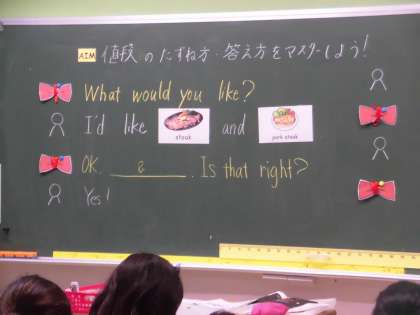 AIM 値段のたずね方・答え方をマスターしよう!
What would you like?
I'd like steak and pork steak
OK. & . Is that right?
Yes!